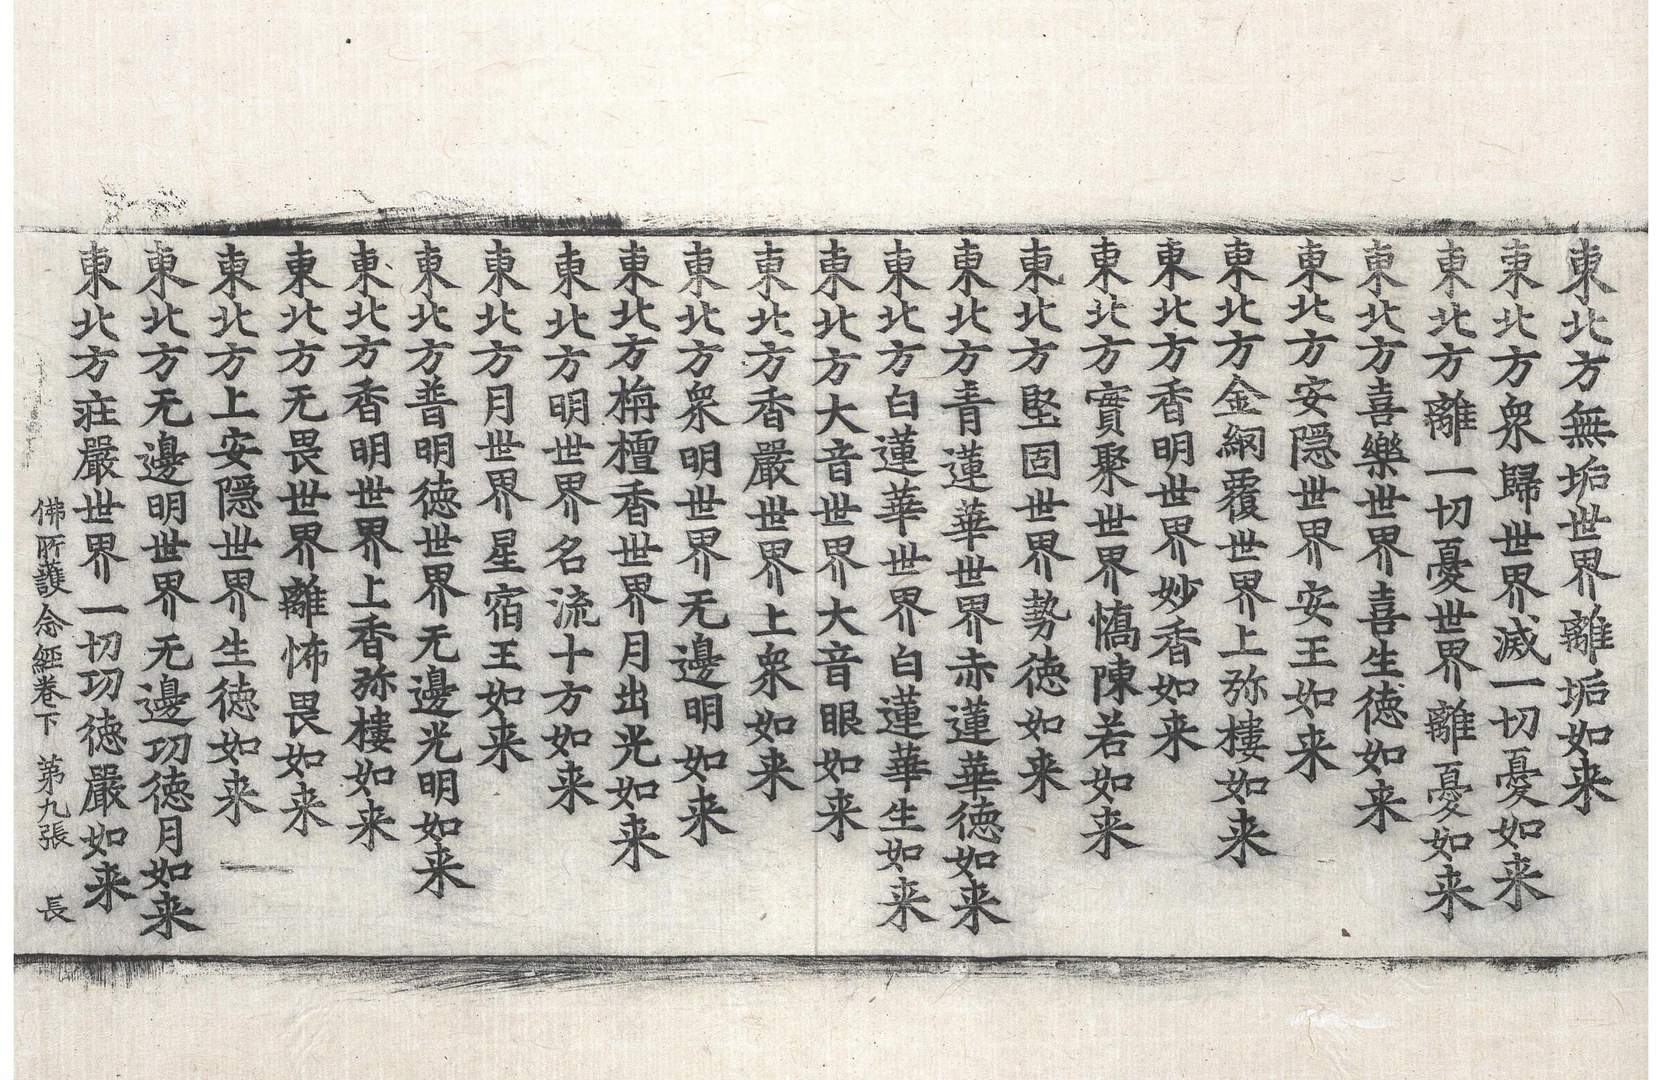 東北方無垢世界離垢如来
東北方衆歸世界滅一切憂如来
東北方離一切憂世界離憂如来
東北方喜樂世界喜生徳如来
東北方安隱世界安王如来
東北方金網覆世界上弥樓如来
東北方香明世界妙香如来
東北方實聚世界憍陳若如来
東北方堅固世界勢徳如来
東北方青蓮華世界赤蓮華徳如来
東北方白蓮華世界白蓮華生如来
東北方大音世界大音眼如来
東北方香嚴世界上衆如来
東北方衆明世界无邊明如来
東北方栴檀香世界月出光如来
東北方明世界名流十方如来
東北方月世界星宿王如来
東北方普明徳世界无邊光明如来
東北方香明世界上香弥樓如来
東北方无畏世界離怖畏如来
東北方上安隱世界生徳如来
東北方无邊明世界无邊功徳月如来
東北方莊嚴世界一切功徳嚴如来
佛所護念經卷下 第九張 長